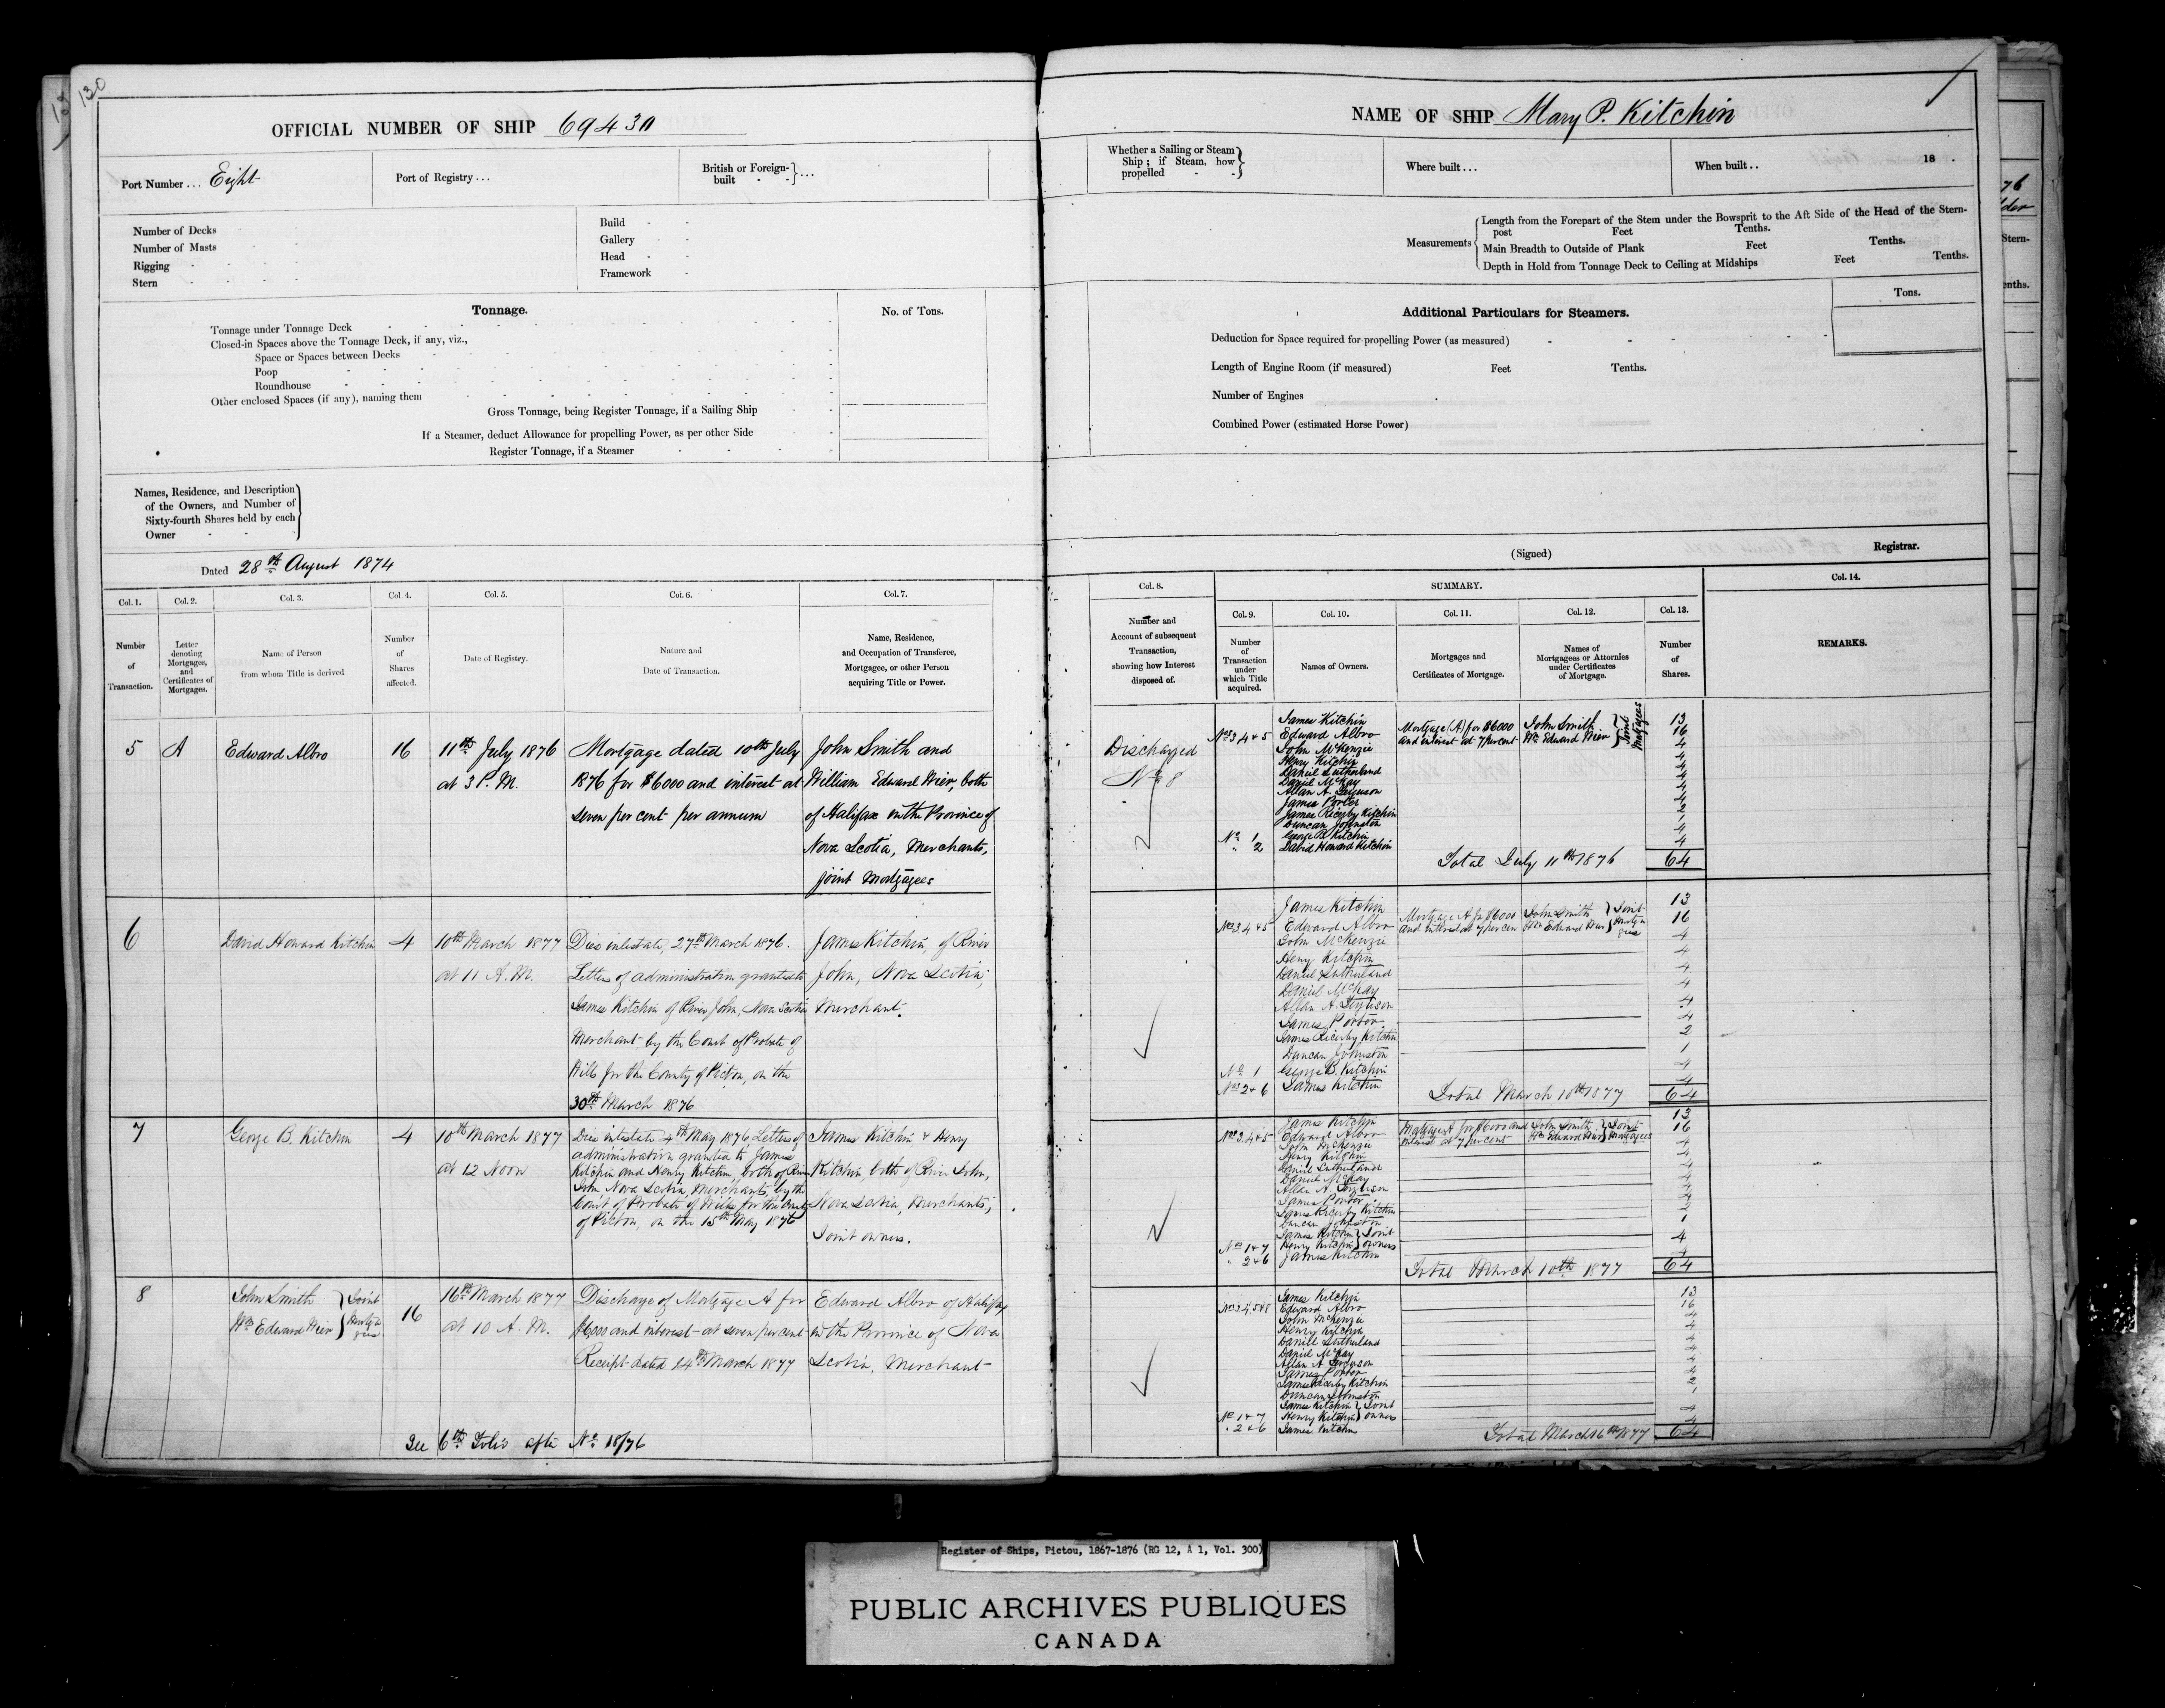 130
OFFICIAL NUMBER OF SHIP 69430
Port Number ... Eight
Port of Registry ...
British or Foreign-built - - } ...
Number of Decks
Number of Masts
Rigging
Stern
Build
Gallery
Head
Framework
Tonnage.
No. of Tons.
Tonnage under Tonnage Deck
Closed-in Spaces above the Tonnage Deck, if any, viz.,
Space or Spaces between Decks
Poop
Roundhouse
Other enclosed Spaces (if any), naming them
Gross Tonnage, being Register Tonnage, if a Sailing Ship
If a Steamer, deduct Allowance for propelling Power, as per other Side
Register Tonnage, if a Steamer
Names, Residence, and Description
of the Owners, and Number of
Sixty-fourth Shares held by each
Owner
Dated 28th August 1874
Col. 1. Col. 2. Col. 3. Col. 4. Col. 5. Col. 6. Col. 7.
Number of Transaction.
Letter denoting Mortgages, and Certificates of Mortgages.
Name of Person from whom Title is derived
Number of Shares affected.
Date of Registry.
Nature and Date of Transaction.
Name, Residence, and Occupation of Transferee, Mortgagee, or other Person acquiring Title or Power.
5 A Edward Albro 16
11th July 1876
at 3 P.M.
Mortgage dated 10th July
1876 for $6000 and interest at
seven per cent per annum
John Smith and
William Edward Wier, both
of Halifax in the Province of
Nova Scotia, Merchants,
joint Mortgagees
6 David Howard Kitchin 4
10th March 1877
at 11 A.M.
Dies intestate, 27th March 1876.
Letters of administration granted to
James Kitchin of River John, Nova Scotia
Merchant, by the Court of Probate of
Wills for the County of Pictou, on the
30th March 1876
James Kitchin, of River
John, Nova Scotia,
Merchant.
7 George B. Kitchin 4
10th March 1877
at 12 Noon
Dies intestate 4th May 1876, Letters of
administration granted to James
Kitchin and Henry Kitchin both of River
John Nova Scotia, Merchants, by the
Court of Probate of Wills for the County
of Pictou, on the 15th May 1876
James Kitchin & Henry
Kitchin, both of River John,
Nova Scotia, Merchants,
Joint owners.
8
John Smith
Wm Edward Wier } Joint Mortgagees
16
16th March 1877
at 10 A.M.
Discharge of Mortgage A for
$6000 and interest at seven per cent
Receipt dated 14th March 1877
Edward Albro of Halifax
in the Province of Nova
Scotia, Merchant
See 6th Folio after No 18/76
NAME OF SHIP Mary P. Kitchin
Whether a Sailing or Steam
Ship; if Steam, how
propelled
Where built ...
When built .. 18 .
Measurements
Length from the Forepart of the Stem under the Bowsprit to the Aft Side of the Head of the Stern-
post Feet Tenths.
Main Breadth to Outside of Plank Feet Tenths.
Depth in Hold from Tonnage Deck to Ceiling at Midships Feet Tenths.
Tons.
Additional Particulars for Steamers.
Deduction for Space required for propelling Power (as measured)
Length of Engine Room (if measured) Feet Tenths.
Number of Engines
Combined Power (estimated Horse Power)
(Signed) Registrar.
Col. 8. SUMMARY. Col. 14.
Col. 9. Col. 10. Col. 11. Col. 12. Col. 13.
Number and Account of subsequent Transaction, showing how Interest disposed of.
Number of Transaction under which Title acquired.
Names of Owners.
Mortgages and Certificates of Mortgage.
Names of Mortgagees or Attornies under Certificates of Mortgage.
Number of Shares.
REMARKS.
Discharged
No 8
James Kitchin 13
Nos 3, 4 & 5 Edward Albro 16
Mortgage (A) for $6000
and interest at 7 per cent
John Smith
Wm Edward Wier } Joint Mortgagees
John McKenzie 4
Henry Kitchin 4
Daniel Sutherland 4
Daniel McKay 4
Allan A. Ferguson 4
James Porter 4
James Ricerby Kitchin 2
Duncan Johnston 1
No 1 George B. Kitchin 4
" 2 David Howard Kitchin 4
Total July 11th 1876 64
James Kitchin 13
Nos 3, 4 & 5 Edward Albro 16
Mortgage A for $6000
and interest at 7 per cen
John Smith
Wm Edward Wier } Joint Mortgagees
John McKenzie 4
Henry Kitchin 4
Daniel Sutherland 4
Daniel McKay 4
Allan A. Ferguson 4
James Porter 4
James Ricerby Kitchin 2
Duncan Johnston 1
No 1 George B. Kitchin 4
Nos 2 & 6 James Kitchin 4
Total March 10th 1877 64
James Kitchin 13
Nos 3, 4 & 5 Edward Albro 16
Mortgage A for $6000 and
interest at 7 per cent
John Smith
Wm Edward Wier } Joint Mortgagees
John McKenzie 4
Henry Kitchin 4
Daniel Sutherland 4
Daniel McKay 4
Allan A. Ferguson 4
James Porter 4
James Ricerby Kitchin 2
Duncan Johnston 1
Nos 1 & 7 James Kitchin
Henry Kitchin } Joint owners 4
" 2 & 6 James Kitchin 4
Total March 10th 1877 64
James Kitchin 13
Nos 3, 4, 5 & 8 Edward Albro 16
John McKenzie 4
Henry Kitchin 4
Daniel Sutherland 4
Daniel McKay 4
Allan A. Ferguson 4
James Porter 4
James Ricerby Kitchin 2
Duncan Johnston 1
Nos 1 & 7 James Kitchin
Henry Kitchin } Joint owners 4
" 2 & 6 James Kitchin 4
Total March 16th 1877 64
Register of Ships, Pictou, 1867-1876 (RG 12, A 1, Vol. 300)
PUBLIC ARCHIVES PUBLIQUES
CANADA